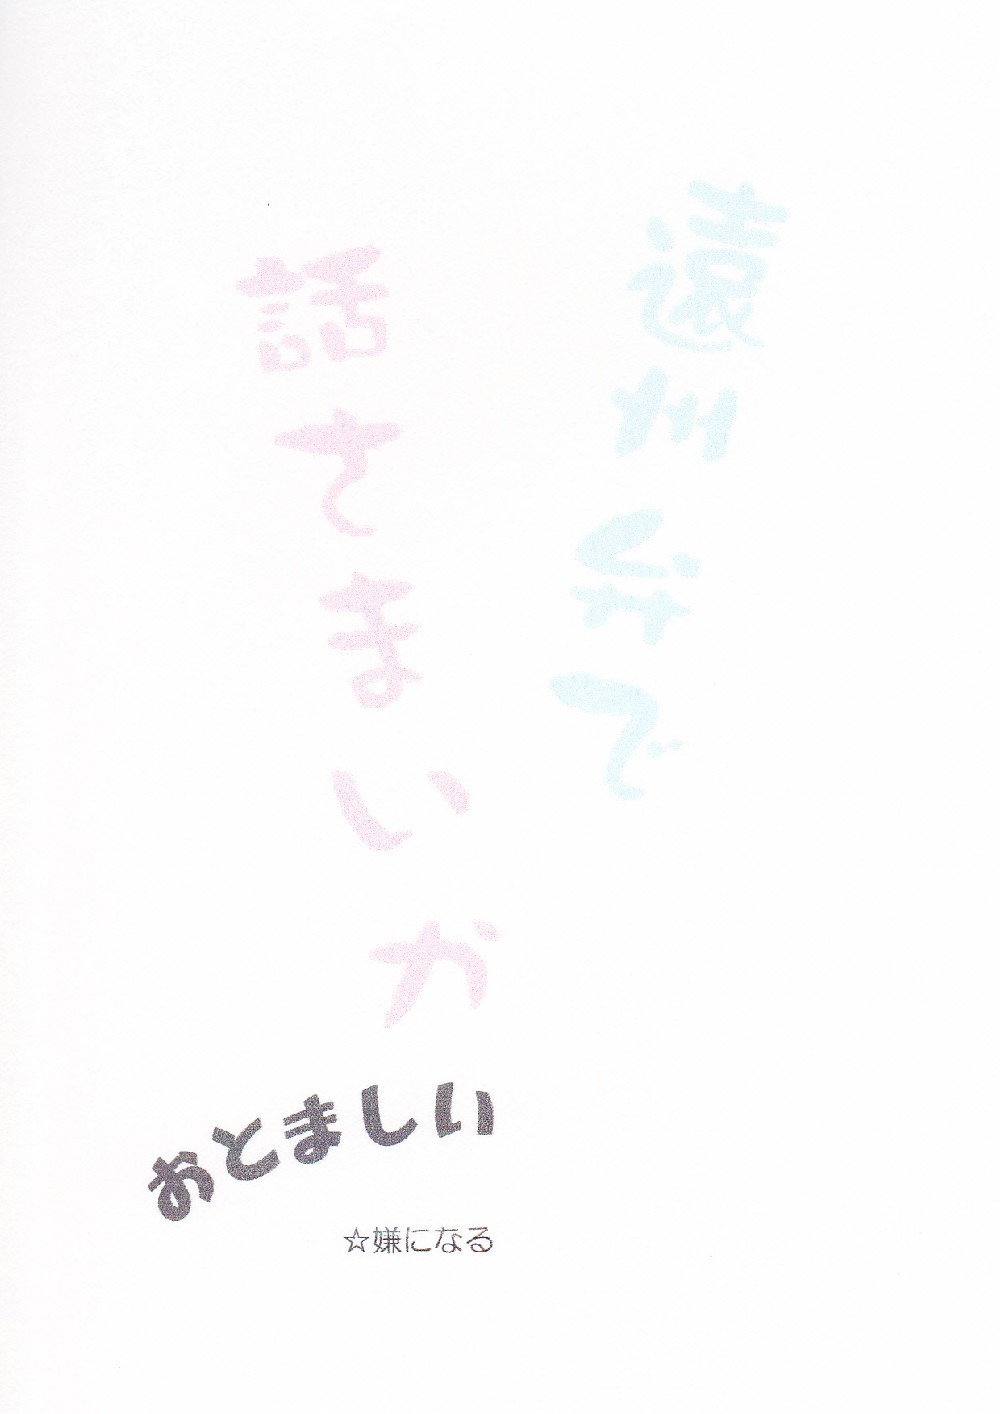 遠州弁で
話さまいか
おとましい
☆嫌になる